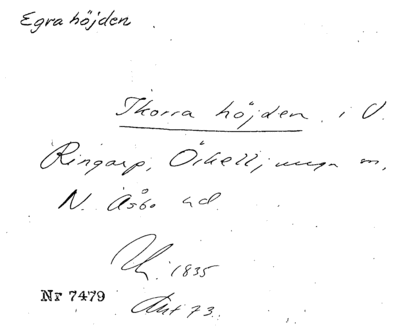 Egra höjden
Ikorra höjden i V.
Ringarp, Örkelljunga sn,
N. Åsbo hd.
1835
Nr 7479
Akt 73.